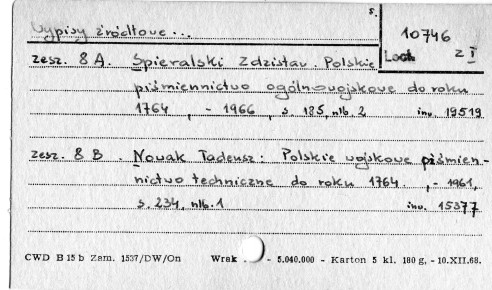 s.
Wypisy źródłowe...
10746
Loch z I
zesz. 8 A. Spieralski Zdzisław. Polskie
piśmiennictwo ogólnowojskowe do roku
1764, - 1966, s. 185, nlb. 2 inw. 19519
zesz. 8 B. Nowak Tadeusz: Polskie wojskowe piśmien-
nictwo techniczne do roku 1764. , - 1961,
s. 234, nlb. 1 inw. 15377
CWD B 15 b Zam. 1537/DW/On Wrak. - 5.040.000 - Karton 5 kl. 180 g. - 10.XII.68.